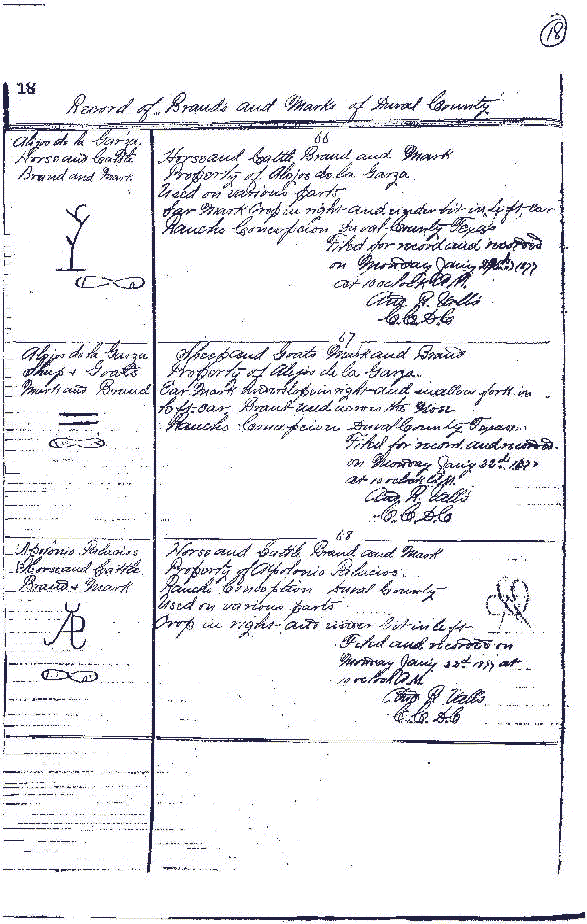 18
18
Record of Brands and Marks of Duval County
Alejos de la Garza
Horse and Cattle
Brand and Mark
66
Horse and Cattle Brand and Mark
Property of Alejos de la Garza
Used on various parts
Ear Mark Crop in right and under bit in left ear
Rancho Concepcion Duval County Texas
Filed for record and recorded
on Monday Jan'y 1877
at 10 oclock A.M.
R. Valls
C.C.D.C
Alejos de la Garza
Sheep & Goats
Mark and Brand
67
Sheep and Goats Mark and Brand
Property of Alejos de la Garza
Ear Mark in right and swallow fork in
left ear Brand used across the Nose
Rancho Concepcion Duval County Texas
Filed for record and recorded
on Monday Jan'y 22d 1877
at 10 oclock A.M.
R. Valls
C.C.D.C
Apolonio Palacios
Horse and Cattle
Brand & Mark
68
Horse and Cattle Brand and Mark
Property of Apolonio Palacios
Rancho Conception Duval County
Used on various parts
Crop in right and under bit in left
Filed and recorded on
Monday Jan'y 22d 1877 at
10 oclock A.M
R. Valls
C.C.D.C